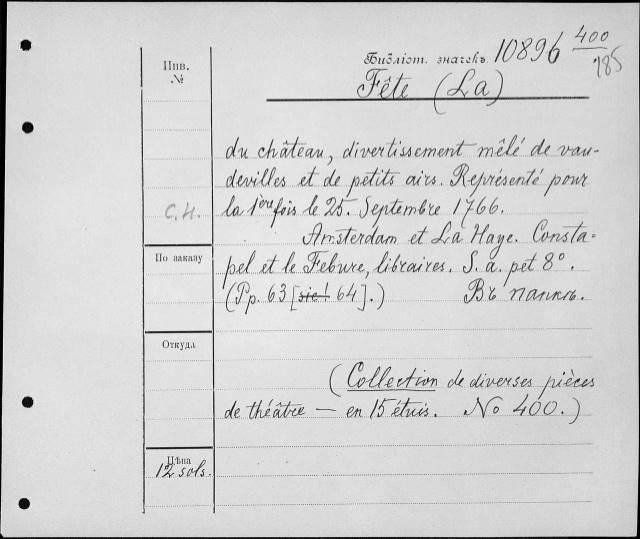 Инв.
№
Библіот. значекъ. 10896 400
185
Fête (La)
du château, divertissement mêlé de vau-
devilles et de petits airs. Représenté pour
С.Н. la 1ère fois le 25. Septembre 1766.
Amsterdam et La Haye. Consta-
По заказу
pel et le Febure, libraires. S. a. pet 8º.
(Pp. 63 [sic! 64].) Въ папкѣ.
Откуда
(Collection de diverses pièces
de théâtre — en 15 étuis. No 400.)
Цѣна
12 sols.